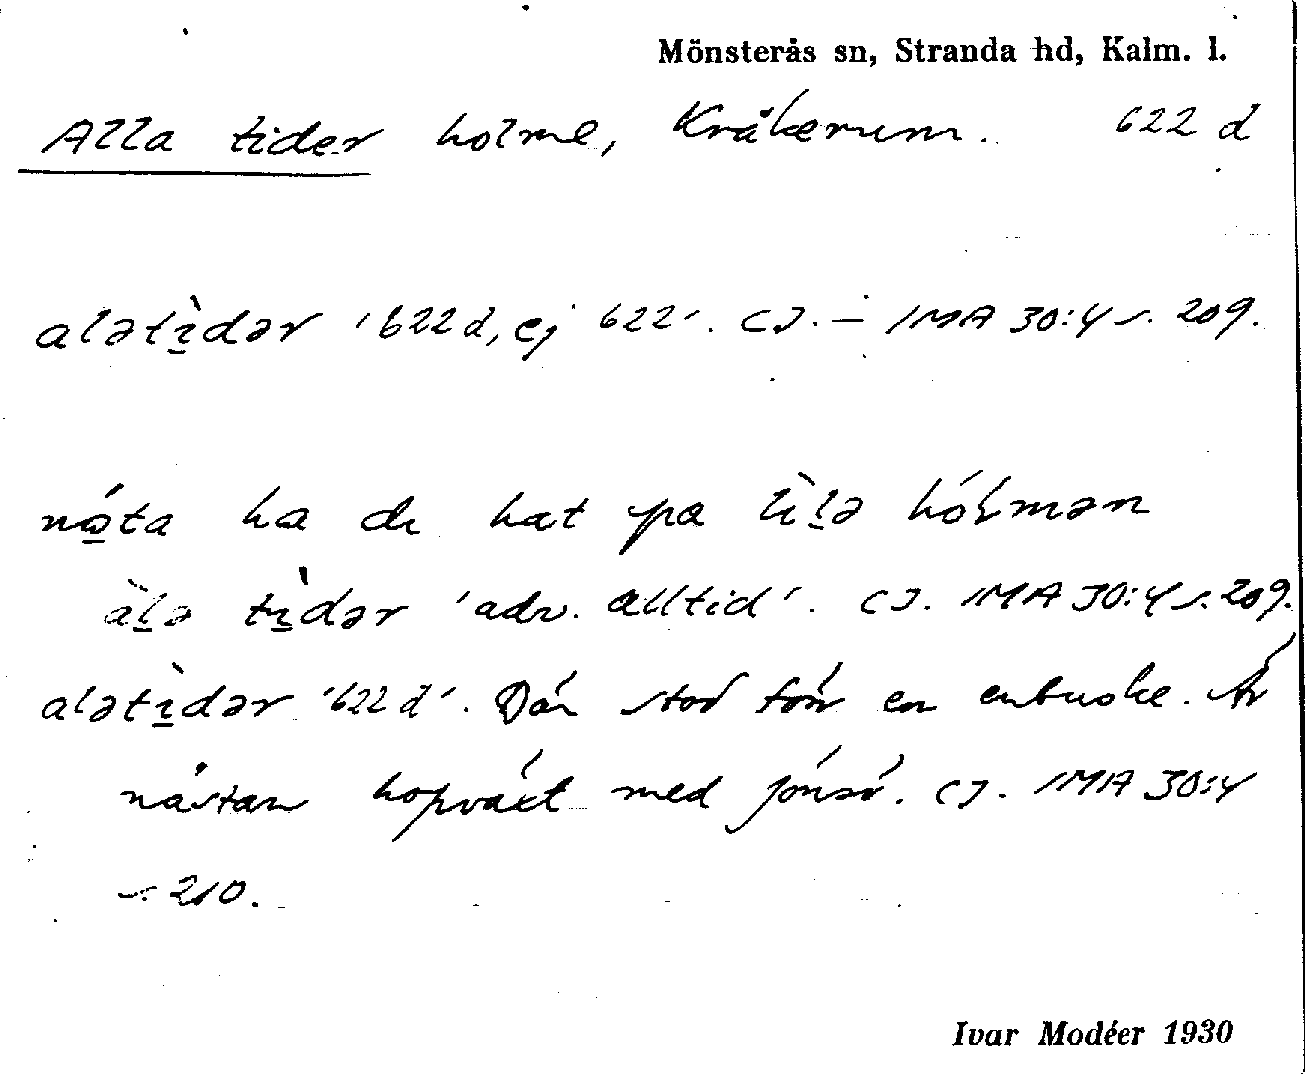 Mönsterås sn, Stranda hd, Kalm. l.
Alla tider holme, Kråkerum. 622 d
alətìdər '622 d, ej 622'. CJ. – IMA 30:4 s. 209.
nǻta ha di hat pa lìlə hólmən
àlə tìdər 'adv. alltid'. CJ. IMA 30:4 s. 209.
alətìdər '622 d'. Där stod förr en enbuske. Är
nästan hopväxt med jönsö. CJ. IMA 30:4
s. 210.
Ivar Modéer 1930